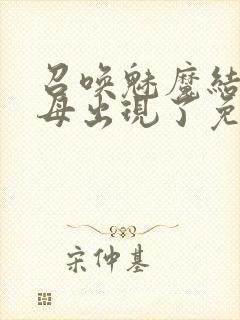 召唤魅魔结
母出现了免
宋仲基